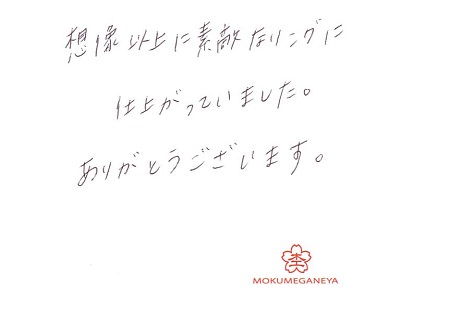 想像以上に素敵なリングに
仕上がっていました。
ありがとうございます。
杢
MOKUMEGANEYA